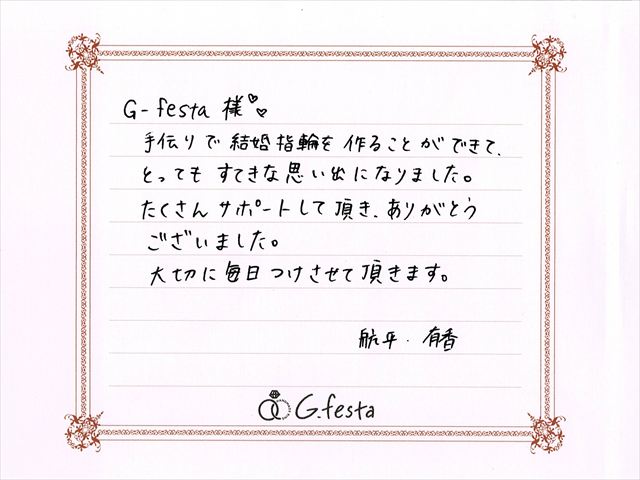 G-festa 様♡♡
手伝りで結婚指輪を作ることができて、
とってもすてきな思い出になりました。
たくさんサポートして頂き、ありがとう
ございました。
大切に毎日つけさせて頂きます。
航平・有香
G.festa